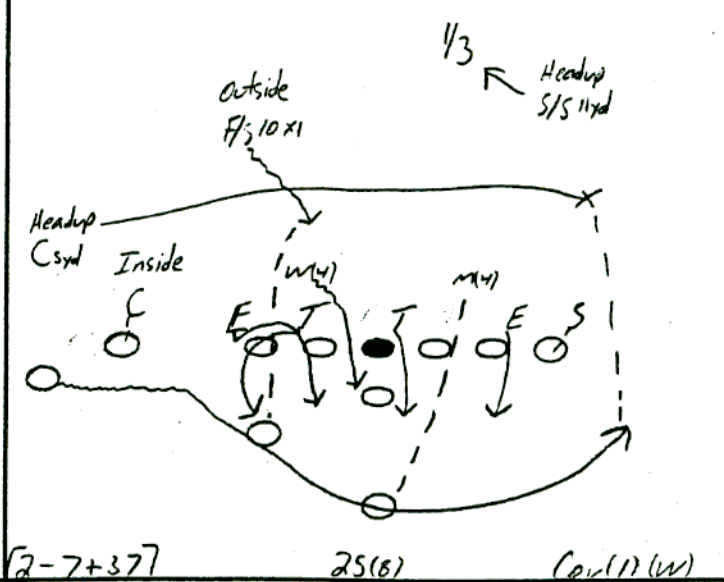 1/3
Headup
S/S 11yd
Outside
F/S 10x1
Headup
C 5yd
Inside
C
W(4)
M(4)
E
T
T
E
S
X
[2-7+37]
25(8)
Cov(1)(W)